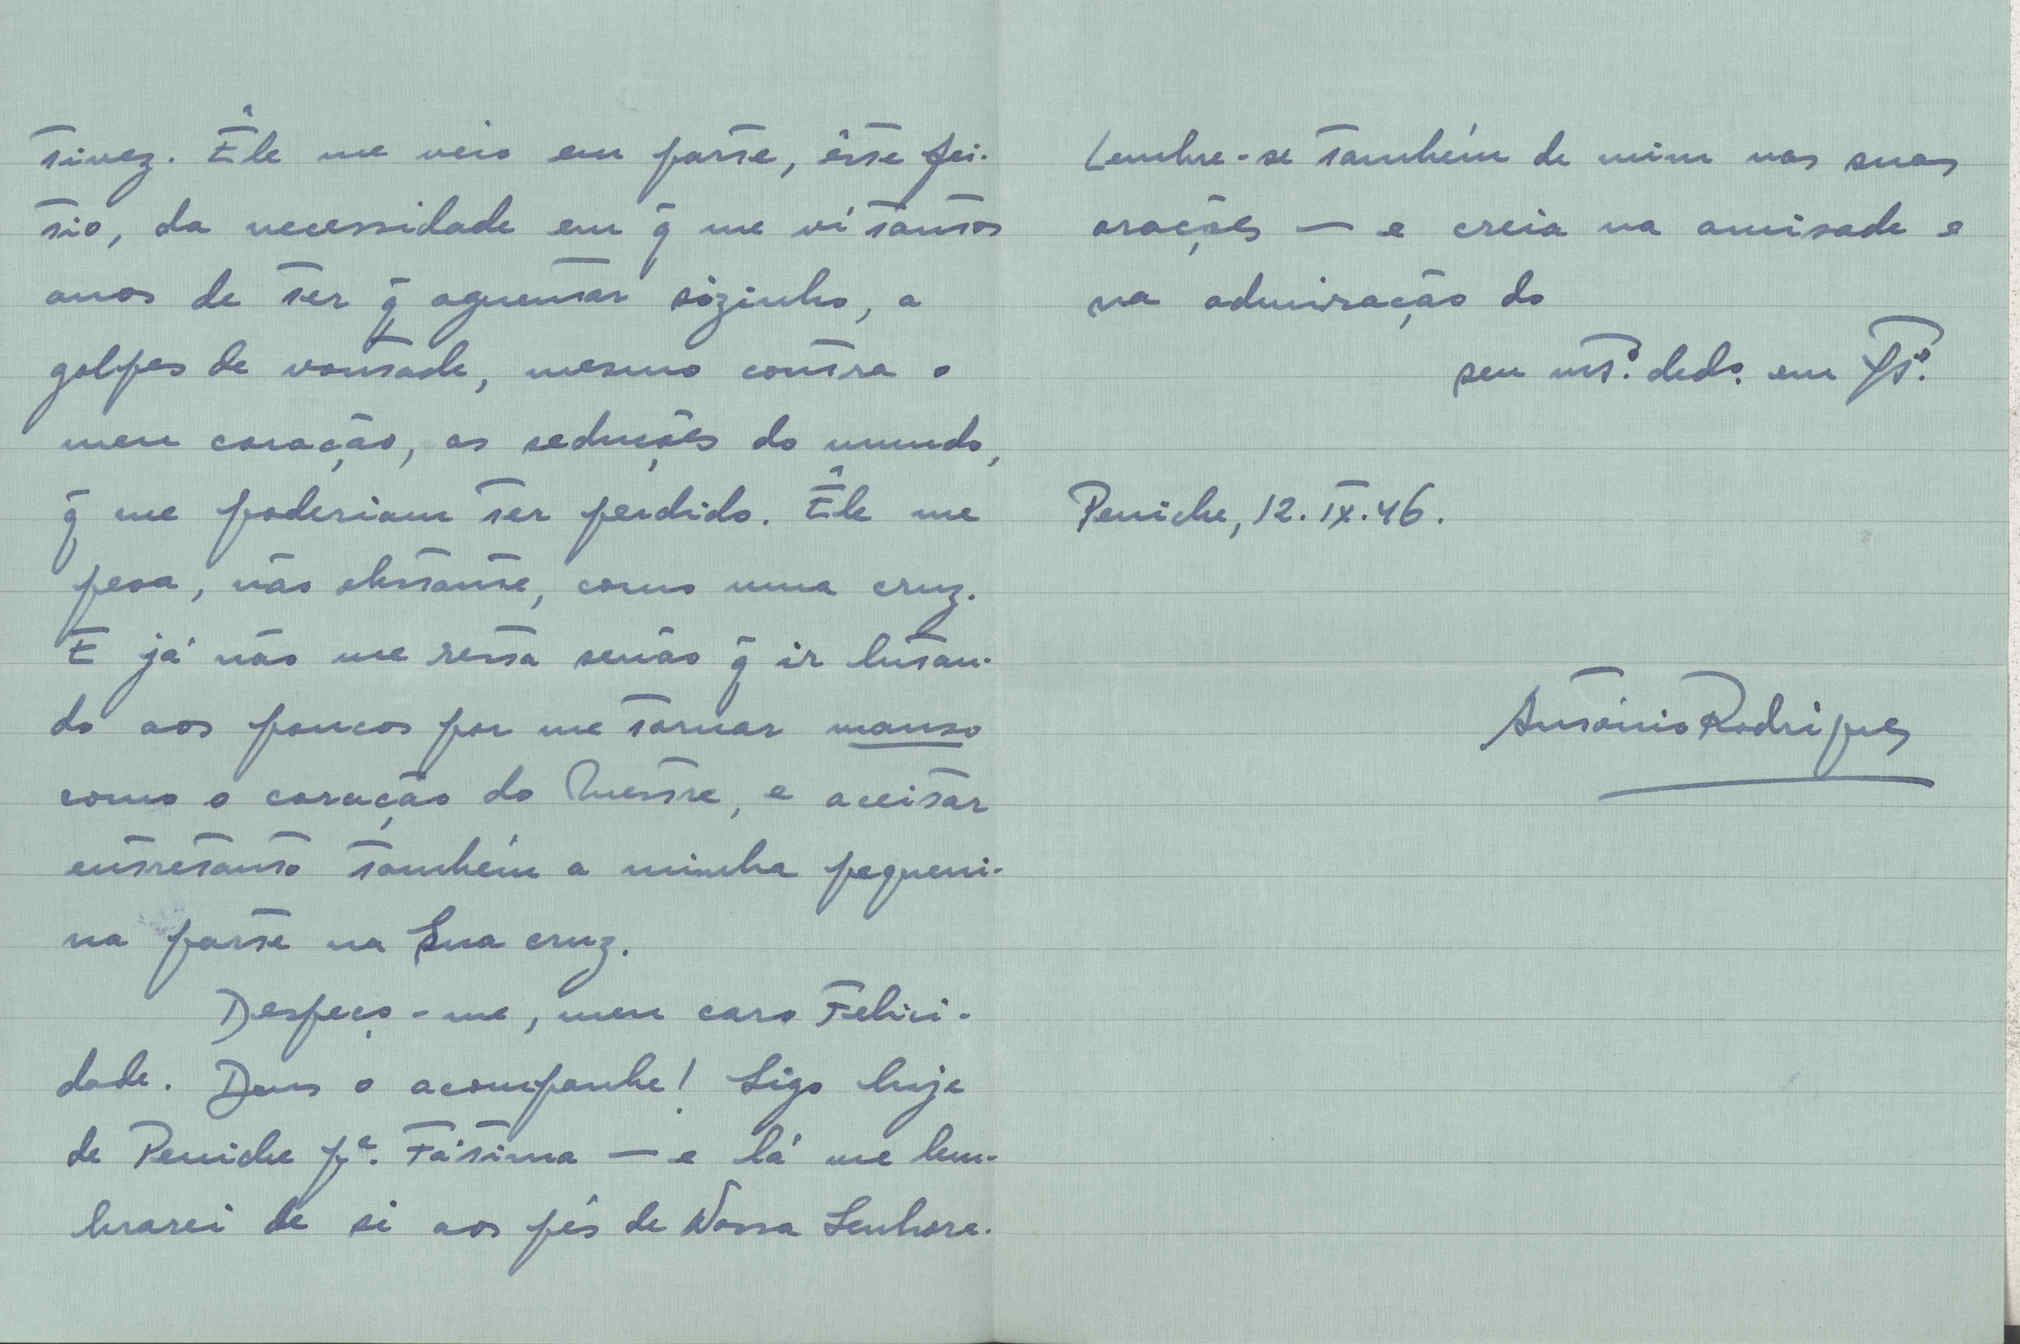 tivez. Êle me veio em parte, êsse fei-
tio, da necessidade em q̃ me vi tantos
anos de ter q̃ aguentar sòzinho, a
golpes de vontade, mesmo contra o
meu coração, as seduções do mundo,
q̃ me poderiam ter perdido. Êle me
pesa, não obstante, como uma cruz.
E já não me resta senão q̃ ir lutan-
do aos poucos por me tornar manso
como o coração do Mestre, e aceitar
entretanto também a minha pequeni-
na parte na Sua cruz.
Despeço-me, meu caro Felici-
dade. Deus o acompanhe! Sigo hoje
de Peniche pª. Fátima — e lá me lem-
brarei de si aos pés de Nossa Senhora.
Lembre-se também de mim nas suas
orações — e creia na amisade e
na admiração do
seu mtº. dedº. em Jtº.
Peniche, 12.IX.46.
António Rodrigues